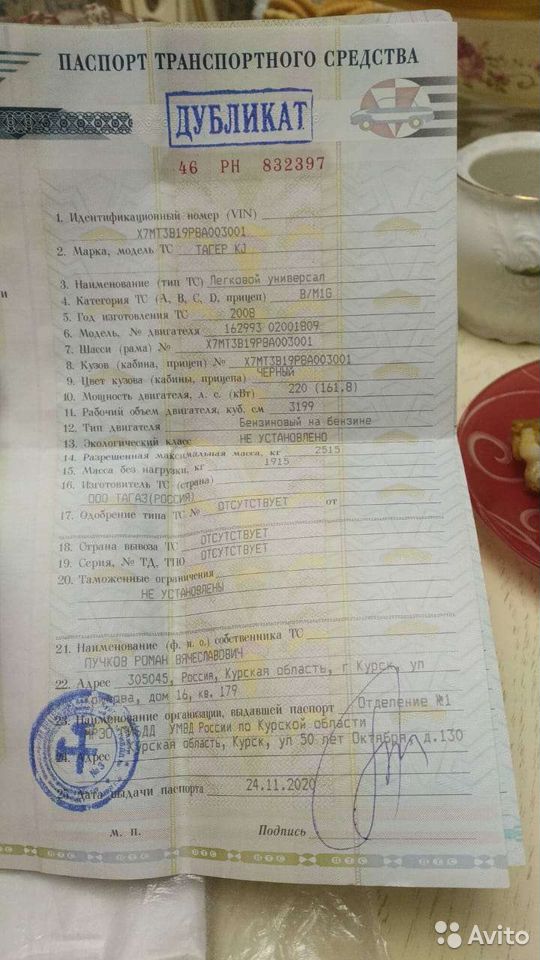 ПАСПОРТ ТРАНСПОРТНОГО СРЕДСТВА
ДУБЛИКАТ
46 РН 832397
1. Идентификационный номер (VIN)
X7MT3B19PBA003001
2. Марка, модель ТС ТАГЕР KJ
3. Наименование (тип ТС) Легковой универсал
4. Категория ТС (А, В, С, D, прицеп) B/M1G
5. Год изготовления ТС 2008
6. Модель, № двигателя 162993 02001809
7. Шасси (рама) № X7MT3B19PBA003001
8. Кузов (кабина, прицеп) № X7MT3B19PBA003001
9. Цвет кузова (кабины, прицепа) ЧЕРНЫЙ
10. Мощность двигателя, л. с. (кВт) 220 (161.8)
11. Рабочий объем двигателя, куб. см 3199
12. Тип двигателя Бензиновый на бензине
13. Экологический класс НЕ УСТАНОВЛЕНО
14. Разрешенная максимальная масса, кг 2515
15. Масса без нагрузки, кг 1915
16. Изготовитель ТС (страна)
ООО ТАГАЗ(РОССИЯ)
17. Одобрение типа ТС № ОТСУТСТВУЕТ от
18. Страна вывоза ТС ОТСУТСТВУЕТ
19. Серия, № ТД, ТПО ОТСУТСТВУЕТ
20. Таможенные ограничения
НЕ УСТАНОВЛЕНЫ
21. Наименование (ф. и. о.) собственника ТС
ПУЧКОВ РОМАН ВЯЧЕСЛАВОВИЧ
22. Адрес 305045, Россия, Курская область, г Курск, ул
дом 16, кв. 179
23. Наименование организации, выдавшей паспорт Отделение №1
МРЭО ГИБДД УМВД России по Курской области
24. Адрес Курская область, Курск, ул 50 лет Октября, д.130
25. Дата выдачи паспорта 24.11.2020
М. П. Подпись
ПТС ПТС ПТС ПТС
Avito